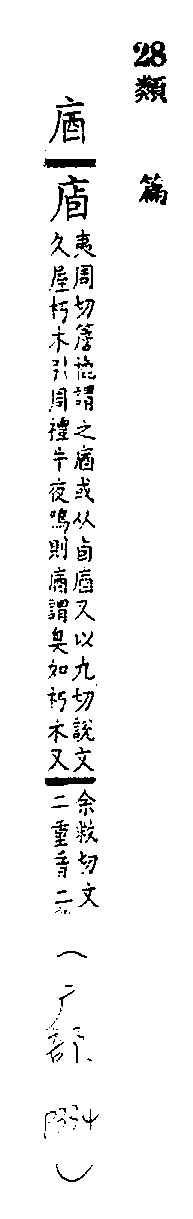 28類 篇
庮
夷周切簷桅謂之庮或从卣庮又以九切說文
久屋朽木引周禮牛夜鳴則庮謂臭如朽木又
余救切文
二重音二
(广部 P334)